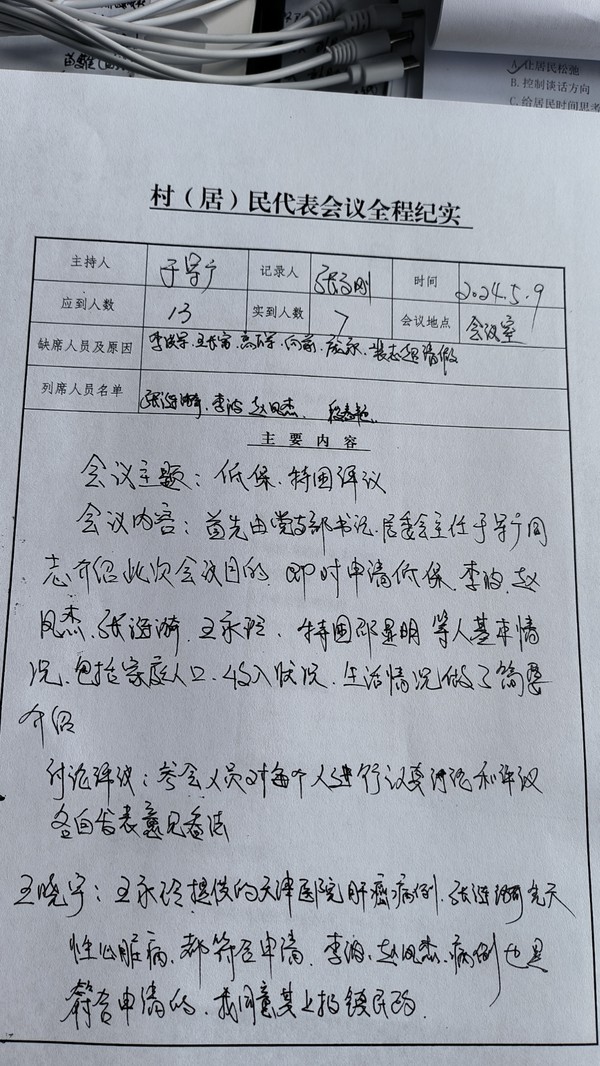 A. 让居民松弛
B. 控制谈话方向
C. 给居民时间思考
村（居）民代表会议全程纪实
主持人 于学广 记录人 张 刚 时间 2024.5.9
应到人数 13 实到人数 7 会议地点 会议室
缺席人员及原因 请假
列席人员名单 李波、赵凤杰、
主要内容
会议主题：低保、特困评议
会议内容：首先由党支部书记、居委会主任于学广同
志介绍此次会议目的，即对申请低保、李波、赵
凤杰、张 王永玲、特困邵显明等人基本情
况、包括家庭人口、收入状况、生活情况做了简要
介绍
讨论评议：参会人员对每个人进行认真讨论和评议
各自发表意见看法
王晓宇：王永玲提供的天津医院肝癌病例，张 先天
性心脏病，都符合申请，李波、赵凤杰、病例也是
符合申请的，我同意其上报镇民政.